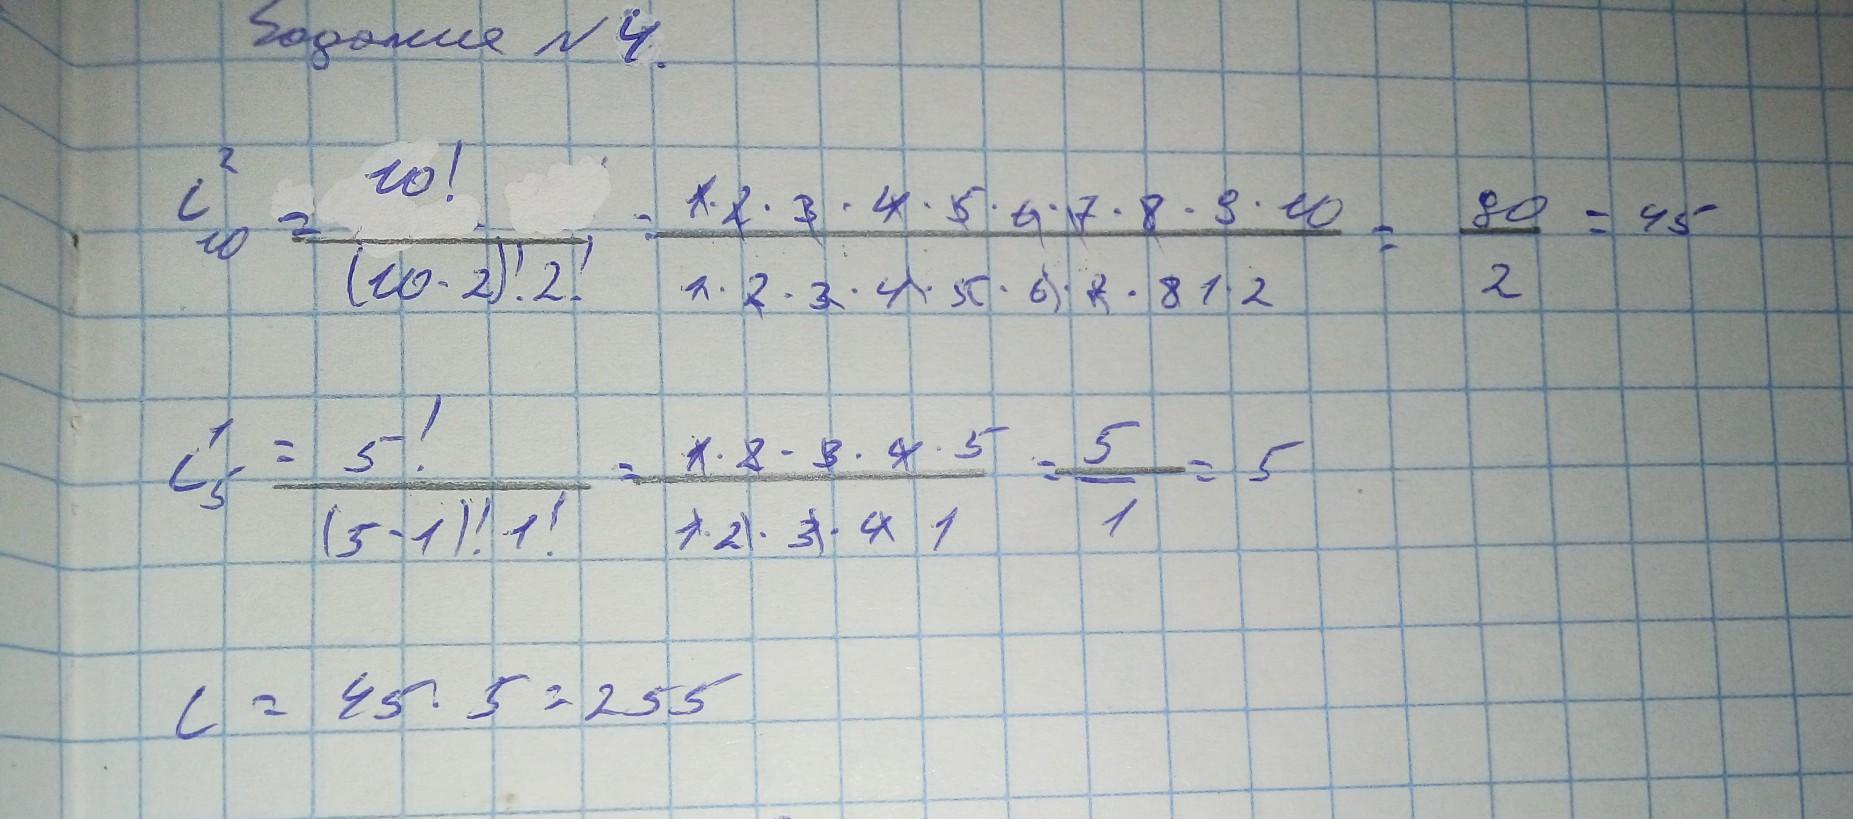 Задание №4.
C²₁₀ = 10! / (10-2)! 2! = 1·2·3·4·5·6·7·8·9·10 / 1·2·3·4·5·6·7·8 1·2 = 90 / 2 = 45
C¹₅ = 5! / (5-1)! 1! = 1·2·3·4·5 / 1·2·3·4 1 = 5 / 1 = 5
C = 45·5 = 255